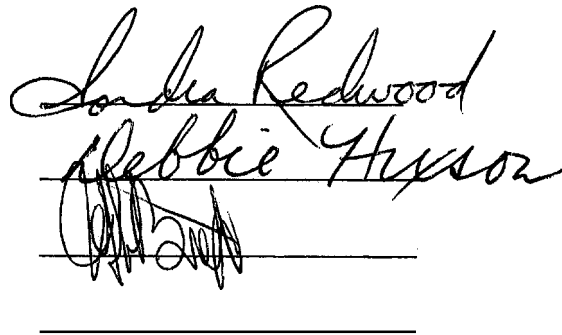 Sondra Redwood
Debbie Hixson